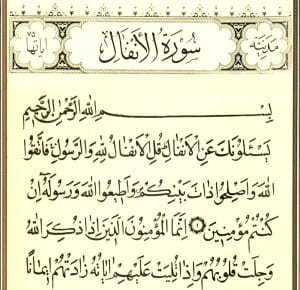 مدنية سورة الأنفال آياتها ٧٥
بِسْمِ اللّٰهِ الرَّحْمٰنِ الرَّحِيمِ
يَسْـَٔلُونَكَ عَنِ الْاَنْفَالِ قُلِ الْاَنْفَالُ لِلّٰهِ وَالرَّسُولِ فَاتَّقُوا
اللّٰهَ وَاَصْلِحُوا ذَاتَ بَيْنِكُمْ وَاَطِيعُوا اللّٰهَ وَرَسُولَهُ اِنْ
كُنْتُمْ مُؤْمِنِينَ ۝ اِنَّمَا الْمُؤْمِنُونَ الَّذِينَ اِذَا ذُكِرَ اللّٰهُ
وَجِلَتْ قُلُوبُهُمْ وَاِذَا تُلِيَتْ عَلَيْهِمْ اٰيَاتُهُ زَادَتْهُمْ اِيمَانًا